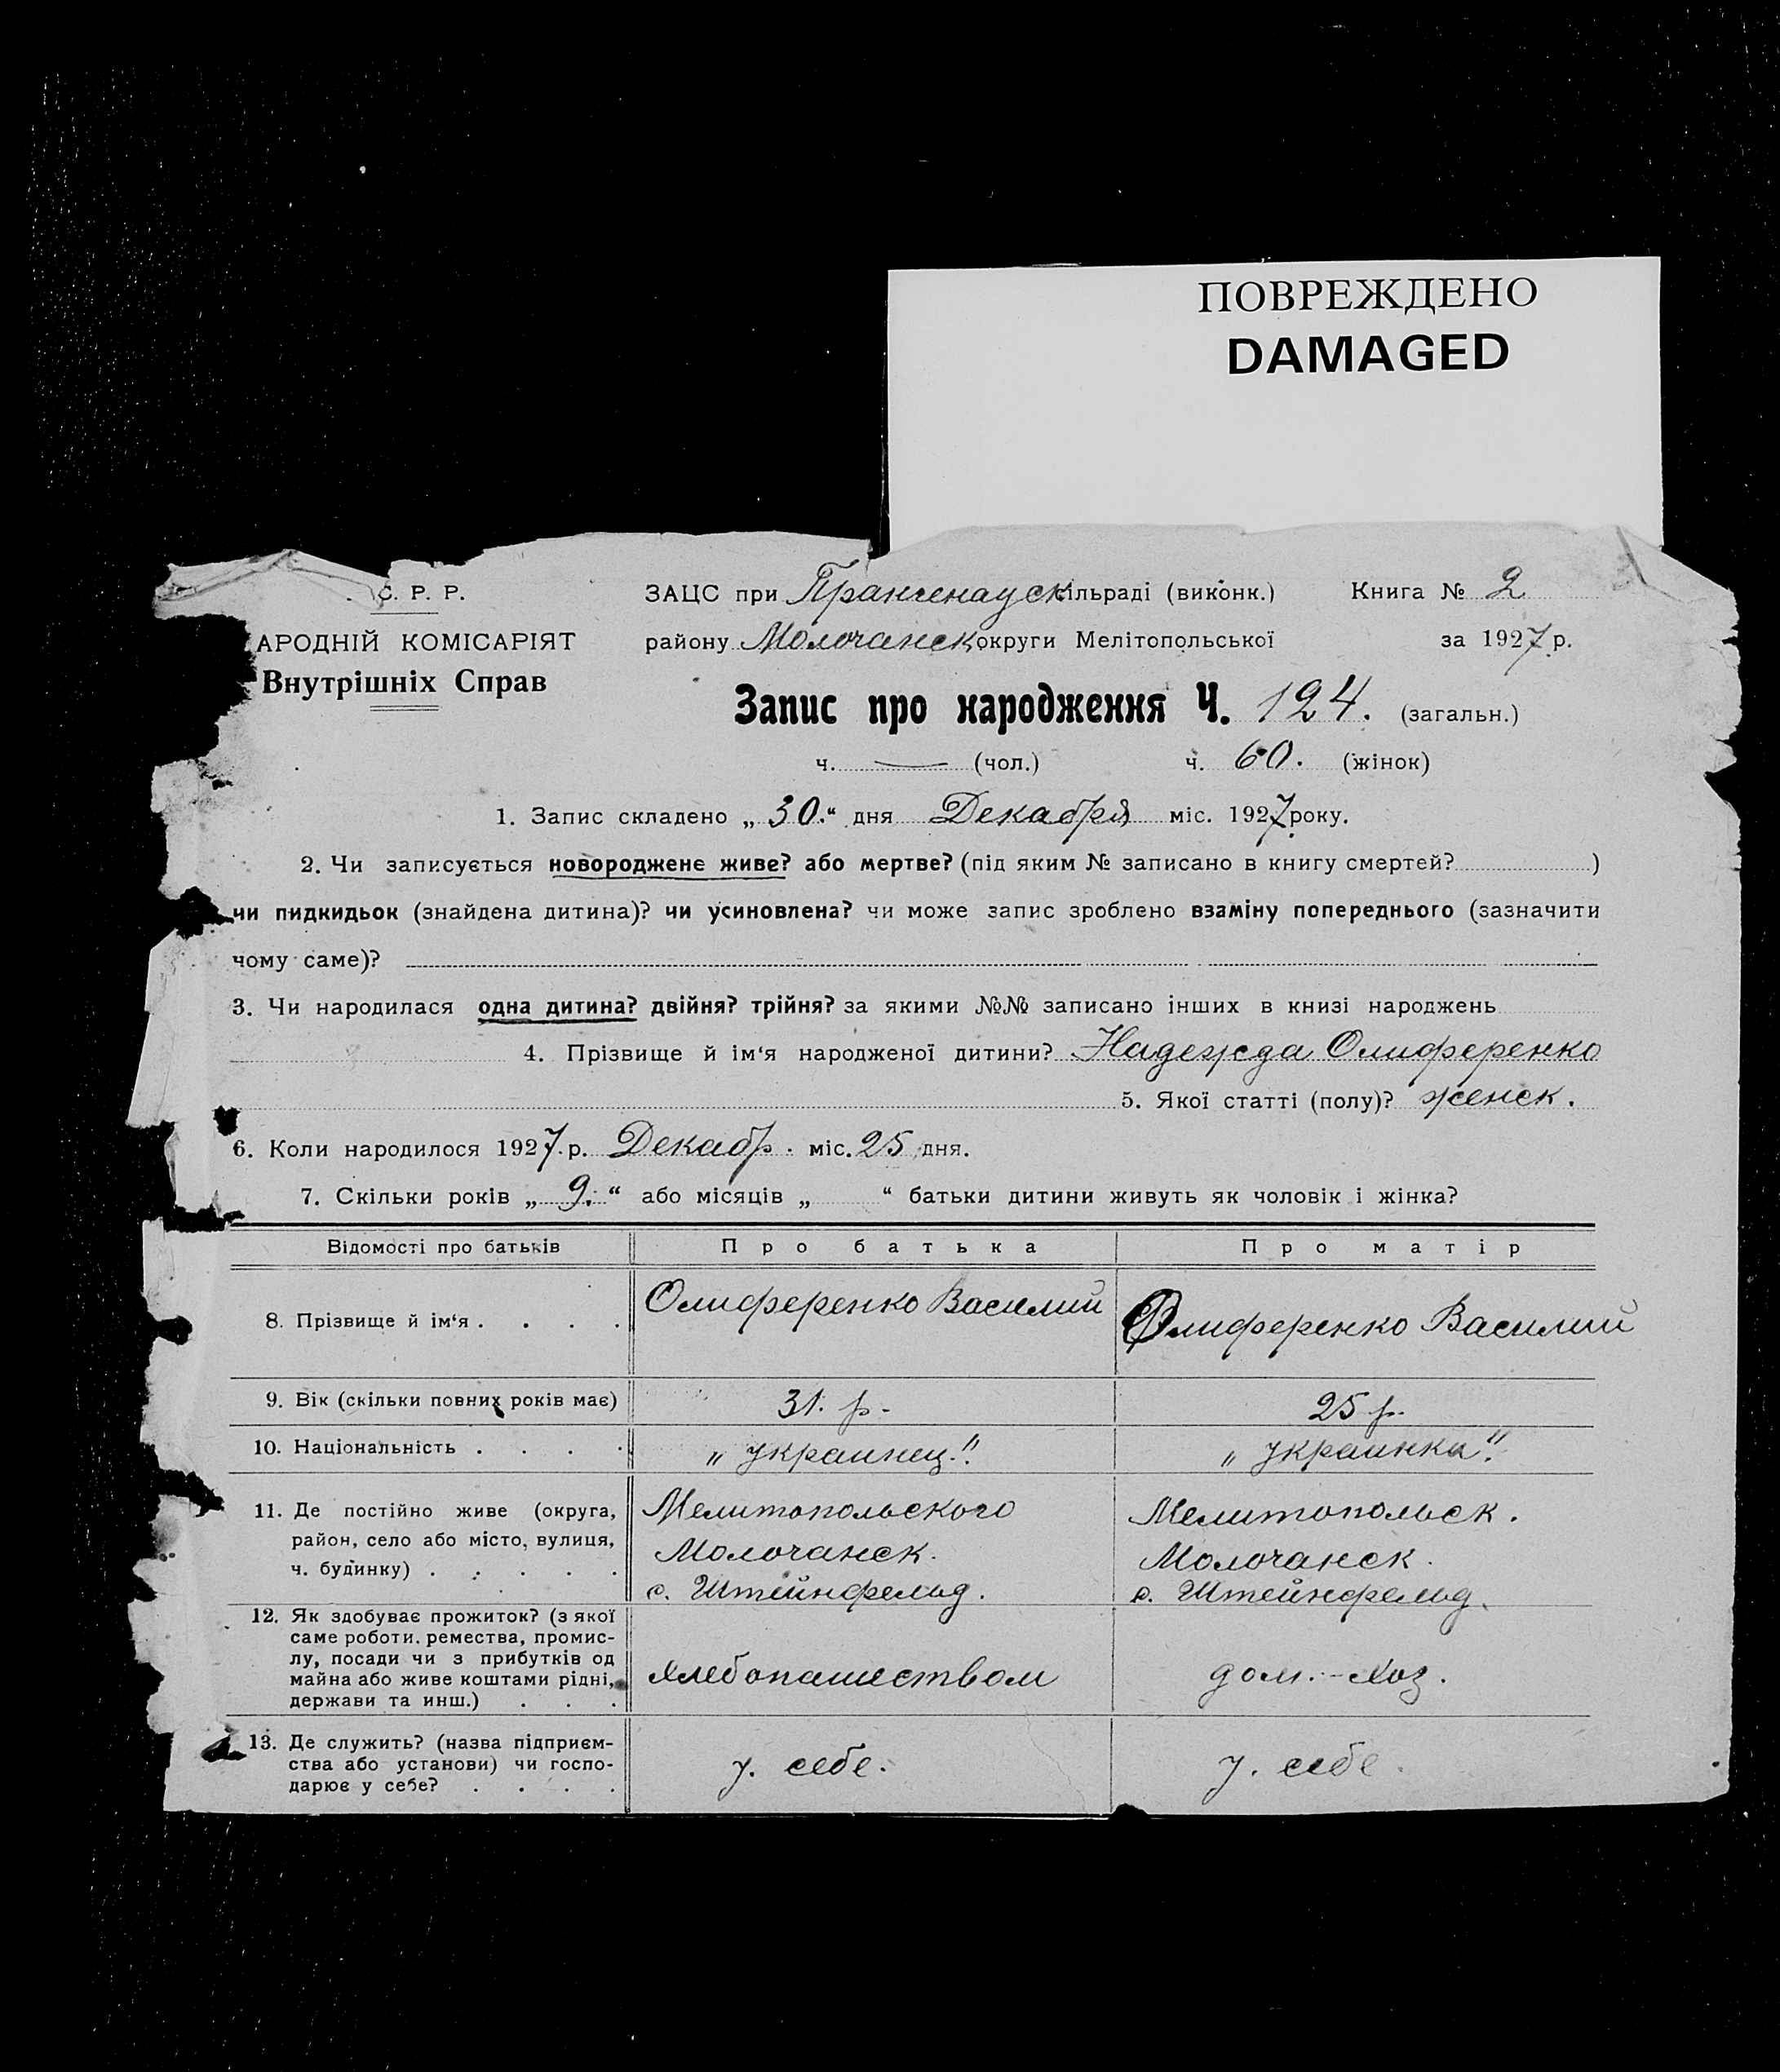 ПОВРЕЖДЕНО
DAMAGED
С. Р. Р.
АРОДНІЙ КОМІСАРІЯТ
Внутрішніх Справ
ЗАЦС при Прангенауск ільраді (виконк.) Книга № 2
району Молочанск округи Мелітопольської за 1927 р.
Запис про народження Ч. 124. (загальн.)
ч. — (чол.) ч. 60. (жінок)
1. Запис складено „ 30. “ дня Декабря міс. 1927 року.
2. Чи записується новороджене живе? або мертве? (під яким № записано в книгу смертей? )
чи пидкидьок (знайдена дитина)? чи усиновлена? чи може запис зроблено взаміну попереднього (зазначити
чому саме)?
3. Чи народилася одна дитина? двійня? трійня? за якими №№ записано інших в книзі народжень
4. Прізвище й ім‘я народженої дитини? Надежда Олиференко
5. Якої статті (полу)? женск.
6. Коли народилося 1927 р. Декабр. міс. 25 дня.
7. Скільки років „ 9. “ або місяців „ “ батьки дитини живуть як чоловік і жінка?
Відомості про батьків Про батька Про матір
8. Прізвище й ім‘я . . . . Олиференко Василий Олиференко Василий
9. Вік (скільки повних років має) 31. р. 25 р.
10. Національність . . . . „ украинец." „ украинка".
11. Де постійно живе (округа, Мелитопольского Мелитопольск.
район, село або місто, вулиця, Молочанск. Молочанск.
ч. будинку) . . . . . с. Штейнфельд. с. Штейнфельд.
12. Як здобуває прожиток? (з якої
саме роботи. ремества, промис-
лу, посади чи з прибутків од
майна або живе коштами рідні, хлебопашеством дом.-хоз.
держави та инш.) . . .
13. Де служить? (назва підприєм-
ства або установи) чи госпо- у. себе. у. себе.
дарює у себе? . . . .